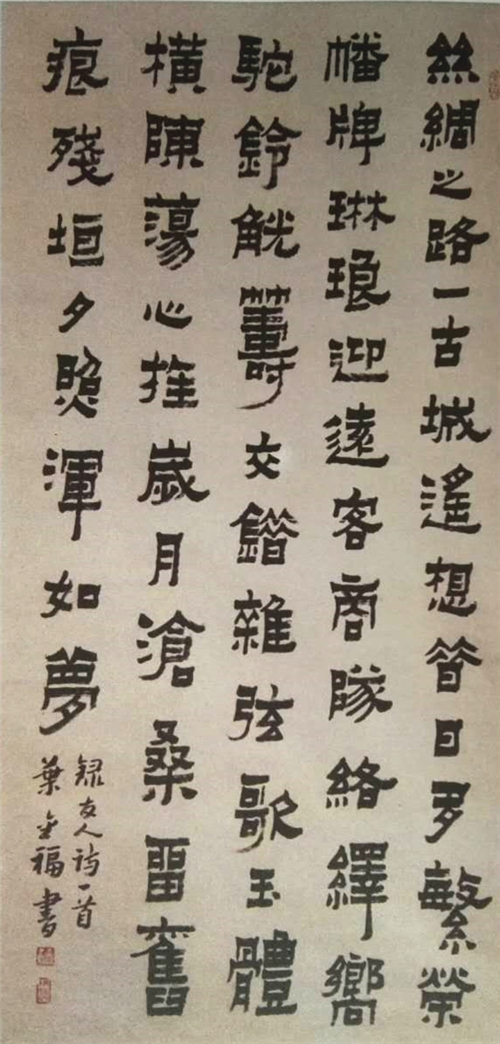 絲綢之路一古城遙想昔日多繁榮
幡牌琳琅迎遠客商隊絡繹嚮
駝鈴觥籌交錯雜弦歌玉體
橫陳蕩心旌歲月滄桑留舊
痕殘垣夕照渾如夢
録友人詩一首
葉金福書